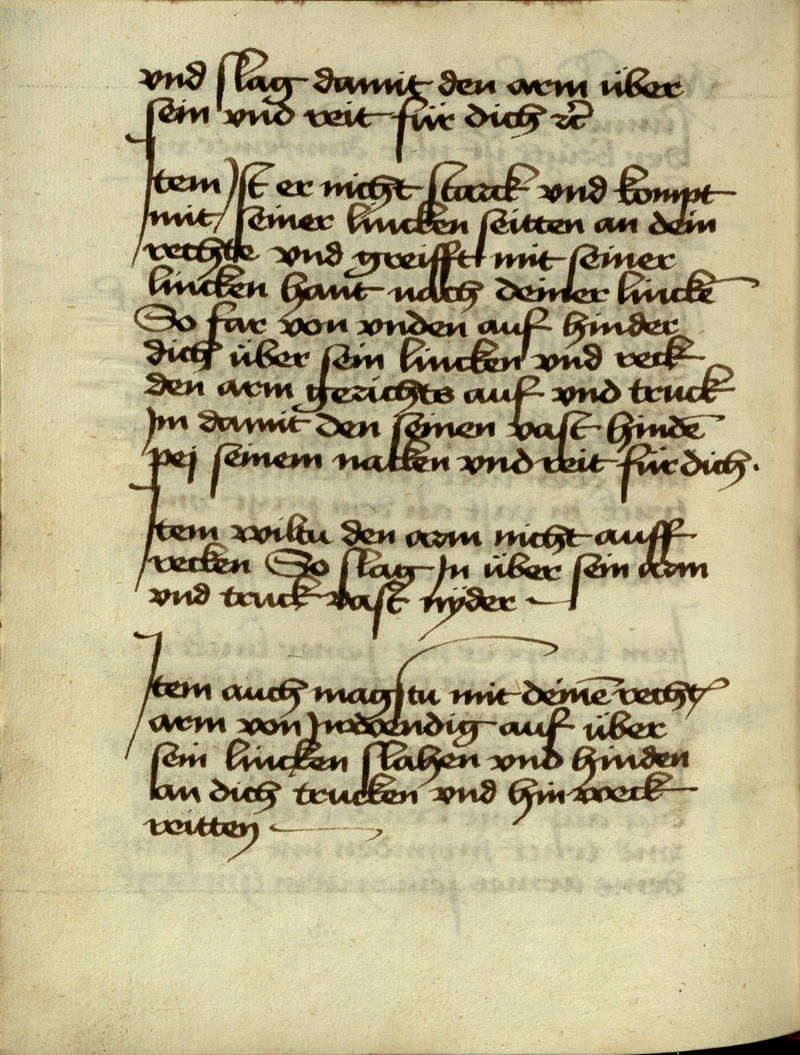 vnd slag damit den arm über
sein vnd reit für dich ⁊c̃
Item Ist er nicht starck vnd kompt
mit seiner lincken seitten an dein
rechte vnd greifft mit seiner
lincken hant nach deiner linckē
So far von vnden auf hinder
dich über sein lincken vnd reck
den arm gerichts auf vnd truck
Im damit den seinen vast hindē
pej seinem nacken vnd reit für dich .
Item wiltu den arm nicht auff
recken So slag In über sein arm
vnd truck vast nÿder
Item auch magstu mit deinē recht
arm von Inwendig auf über
sein lincken slahen vnd hinden
an dich trucken vnd hin weck
reitten